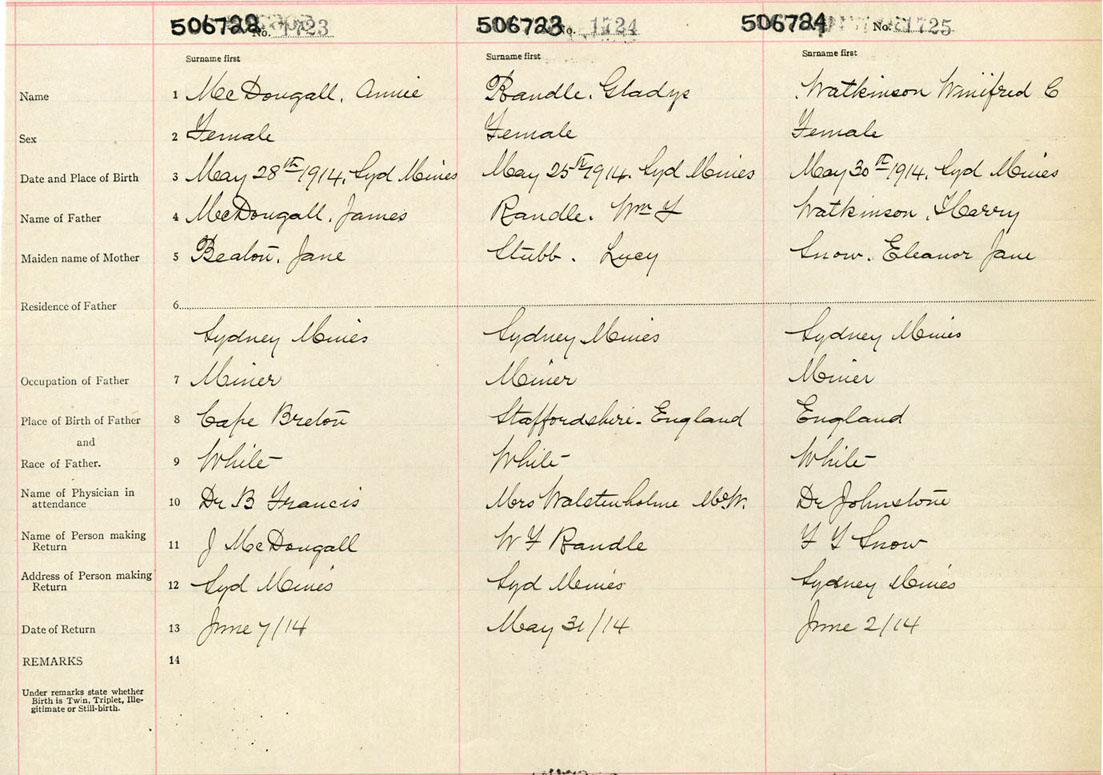 506722 No. 1723 506723 No. 1724 506724 No. 1725
Surname first Surname first Surname first
Name 1 McDougall, Annie Randle, Gladys Watkinson Winifred C
Sex 2 Female Female Female
Date and Place of Birth 3 May 28th 1914, Syd Mines May 25th 1914, Syd Mines May 30th 1914, Syd Mines
Name of Father 4 McDougall, James Randle. Wm Y Watkinson, Harry
Maiden name of Mother 5 Beaton, Jane Stubb. Lucy Snow. Eleanor Jane
Residence of Father 6
Sydney Mines Sydney Mines Sydney Mines
Occupation of Father 7 Miner Miner Miner
Place of Birth of Father 8 Cape Breton Staffordshire. England England
and
Race of Father. 9 White White White
Name of Physician in
attendance 10 Dr B Francis Mrs Walstenholme Dr Johnstone
Name of Person making
Return 11 J McDougall W Y Randle Snow
Address of Person making
Return 12 Syd Mines Syd Mines Sydney Mines
Date of Return 13 June 7/14 May 31/14 June 2/14
REMARKS 14
Under remarks state whether
Birth is Twin, Triplet, Ille-
gitimate or Still-birth.